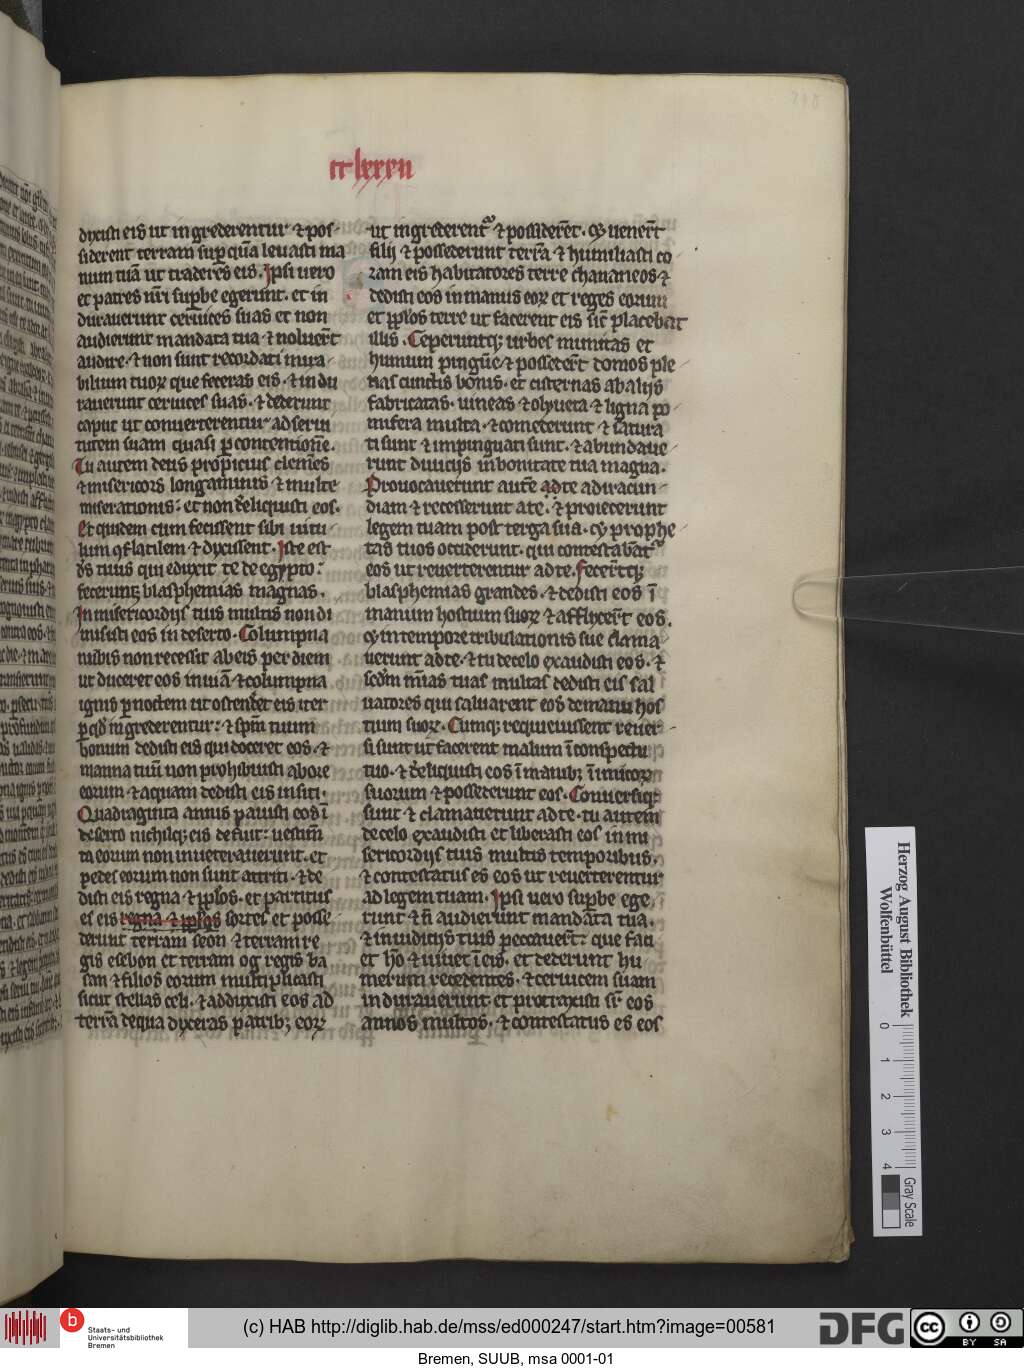 cclxxxii
dixisti eis ut ingrederentur ⁊ pos-
siderent terram sup q̄ua leuasti ma
num tuā ut traderes eis. Ipsi uero
et patres nr̄i supbe egerunt. et in
durauerunt ceruices suas et non
audierunt mandata tua ⁊ noluer̄t
audire. ⁊ non sunt recordati mira-
bilium tuoꝝ que feceras eis. ⁊ indu
rauerunt ceruices suas. ⁊ dederunt
caput ut conuerterentur ad serui
tutem suam quasi ꝑ contentionē.
Tu autem deus propicius clemēs
⁊ misericors longanimis ⁊ multe
miserationis: et non dereliquisti eos.
Et quidem cum fecissent sibi uitu-
lum ꝯflatilem ⁊ dixissent. Iste est
ds̄ tuus qui eduxit te de egypto:
feceruntꝗ blasphemias magnas.
In misericordijs tuis multis non di
misisti eos in deserto. Columpna
nubis non recessit ab eis per diem
ut duceret eos in uiā ⁊ columpna
ignis ꝑ noctem ut ostenderet eis iter
ꝑ qd̄ ingrederentur: ⁊ spm̄ tuum
bonum dedisti eis qui doceret eos. ⁊
manna tuū non prohibuisti ab ore
eorum ⁊ aquam dedisti eis in siti.
Quadraginta annis pauisti eos ī
deserto nichilqꝫ eis defuit: uestim̄
ta eorum non inueterauerunt. et
pedes eorum non sunt attriti. ⁊ de
disti eis regna ⁊ pplos. et partitus
es eis regna ⁊ pplos sortes et posse
derunt terram seon ⁊ terram re
gis esebon et terram og regis ba
san ⁊ filios eorum multiplicasti
sicut stellas celi. ⁊ adduxisti eos ad
terrā de qua dixeras patribꝫ eoꝝ
ut ingrederent̄ ⁊ possiderēt. ꝯ uenert̄
filij ⁊ possederunt terrā ⁊ humiliasti co
ram eis habitatores terre chananeos ⁊
dedisti eos in manus eoꝝ et reges eorum
et pplos terre ut facerent eis sic̄ placebat
illis. Ceperuntqꝫ urbes munitas et
humum pinguē ⁊ possederūt domos ple
nas cunctis bonis. et cisternas ab alijs
fabricatas. uineas ⁊ oliueta ⁊ ligna po
mifera multa. ⁊ comederunt ⁊ satura
ti sunt ⁊ impinguati sunt. ⁊ abundaue
runt diuicijs in bonitate tua magna.
Prouocauerunt autē a te ad iracun
diam ⁊ recesserunt a te. ⁊ proiecerunt
legem tuam post terga sua. ꝯ prophe
tas tuos occiderunt. qui contestabāt̄
eos ut reuerterentur ad te. feceruntqꝫ
blasphemias grandes. ⁊ dedisti eos ī
manum hostium suoꝝ ⁊ afflixer̄t eos.
ꝯ in tempore tribulationis sue clama
uerunt ad te. ⁊ tu de celo exaudisti eos. ⁊
scdm̄ mīas tuas multas dedisti eis sal
uatores qui saluarent eos de manu hos
tium suoꝝ. Cumqꝫ requieuissent reuer
si sunt ut facerent malum ī conspectu
tuo. ⁊ dereliquisti eos ī manibꝫ īimicoꝝ
suorum ⁊ possederunt eos. Conuersiqꝫ
sunt ⁊ clamauerunt ad te. tu autem
de celo exaudisti et liberasti eos in mi
sericordijs tuis multis temporibus.
⁊ contestatus es eos ut reuerterentur
ad legem tuam. Ipsi uero supbe ege
runt ⁊ n̄ audierunt mandata tua.
⁊ in iudicijs tuis peccauer̄t: que faci
et ho ⁊ uiuet ī eis. et dederunt hu
merum recedentes. ⁊ ceruicem suam
indurauerunt. et protraxisti sr̄ eos
annos multos. ⁊ contestatus es eos
Herzog August Bibliothek
Wolfenbüttel
0 1 2 3 4
Gray Scale
b
Staats- und
Universitätsbibliothek
Bremen
(c) HAB http://diglib.hab.de/mss/ed000247/start.htm?image=00581
DFG
cc BY SA
Bremen, SUUB, msa 0001-01